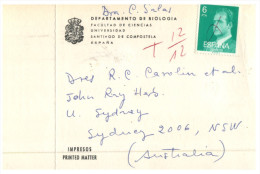 Dra. C. Salas
DEPARTAMENTO DE BIOLOGIA
FACULTAD DE CIENCIAS
UNIVERSIDAD
SANTIAGO DE COMPOSTELA
ESPAÑA
6
ESPAÑA
+ 12/12
Dres R. C. Carolin et al.
John Ray Heb.
U. Sydney
Sydney 2006, NSW.
(Australia)
IMPRESOS
PRINTED MATTER